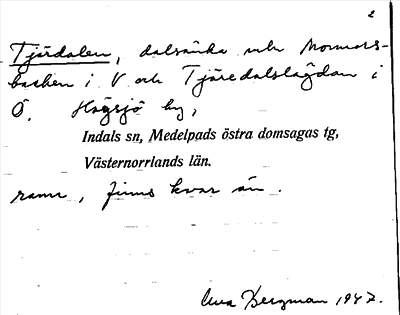 2
Tjärdalen, dalsänka mln Mormors-
backen i V och Tjäredalslägdan i
Ö. Högsjö by,
Indals sn, Medelpads östra domsagas tg,
Västernorrlands län.
namn, finns kvar än.
Bergman 1947.